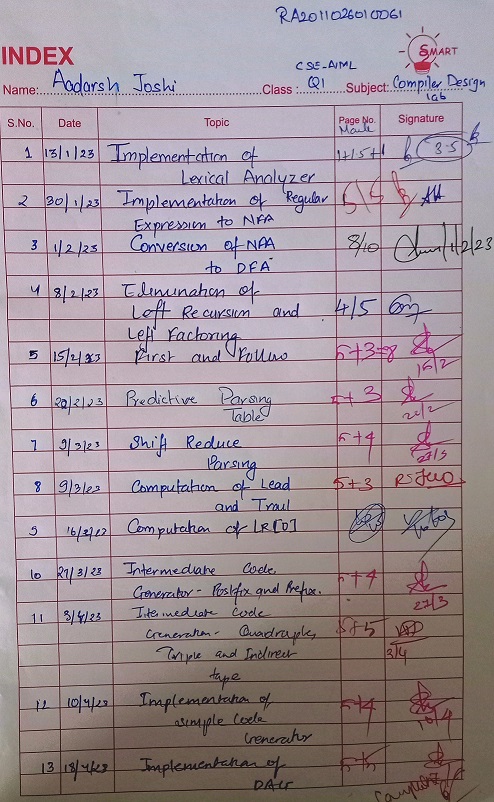 RA2011026010061
SMART
INDEX
CSE-AIML
Name: Aadarsh Joshi Class: Q1 Subject: Compiler Design
lab
S.No. Date Topic Page No. Signature
Marks
1 13/1/23 Implementation of 3.5
Lexical Analyzer
2 30/1/23 Implementation of Regular 5/5
Expression to NFA
3 1/2/23 Conversion of NFA 8/10 1/2/23
to DFA
4 8/2/23 Elimination of
Left Recursion and 4/5
Left Factoring
5 15/2/23 First and Follow 5+3=8
15/2
6 20/2/23 Predictive Parsing 5+3
Table
7 9/3/23 Shift Reduce 5+4
Parsing
8 9/3/23 Computation of Lead 5+3
and Trail
9 Computation of LR[0]
10 27/3/23 Intermediate Code 5+4
Generator - Postfix and Prefix. 27/3
11 3/4/23 Intermediate Code
Generation - Quadruple, 5+5
Triple and Indirect 3/4
tape
12 10/4/23 Implementation of 5+4
simple Code 10/4
Generator
13 18/4/23 Implementation of 5+5
DAG